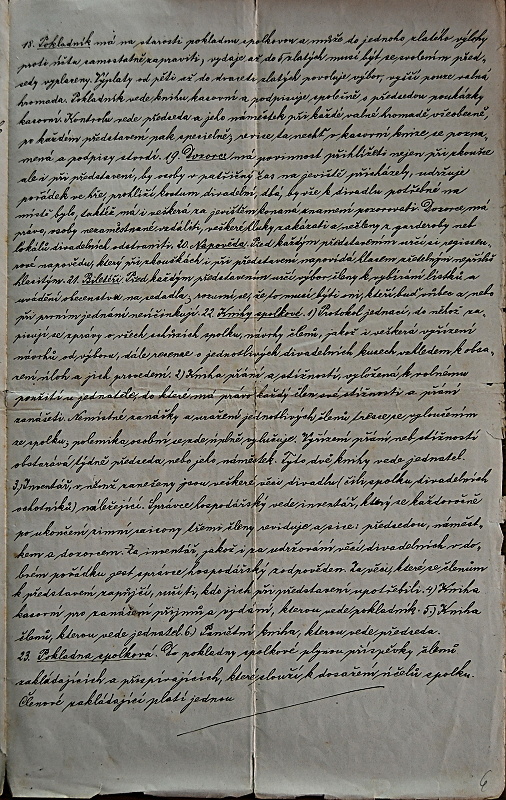 18. Pokladník má na starosti pokladnu spolkovou a může do jednoho zlatého výlohy
proti účtu samostatně zapraviti, vydaje až do 5 zlatých musí být se svolením před-
sedy vyplaceny. Výplaty od pěti až do dvaceti zlatých povoluje výbor, vyšší pouze valná
hromada. Pokladník vede knihu kasovní a podpisuje společně s předsedou poukázky
kasovní. Kontrolu vede předseda a jeho náměstek při každé valné hromadě všeobecně,
po každém představení pak specielně; revise ta nechť v kasovní knize se pozna-
mená a podpisy stvrdí. 19. Dozorce má povinnost přihlížeti nejen při zkoušce
ale i při představení, by osoby v patřičný čas na jeviště přicházely, udržuje
pořádek ve hře, prohlíží kostum divadelní, dbá, by vše k divadlu potřebné na
místě bylo, tudíž má i veškerá za jevištěm konaná znamení pozorovati. Dozorce má
právo, osoby nezaměstnané vzdáliti, veškeré hluky zakázati a nečleny z garderoby neb
lokálů divadelních odstraniti. 20. Napověda. Před každým představením určí si regisseur
nového napovědu, který při zkouškách i při představení napovídá hlasem zřetelným nepříliš
hlasitým. 21. Biletáři. Před každým představením určí výbor členy k vybírání lístků a
uvádění obecenstva na sedadla; rozumí se, že to musí býti oni, kteří buď vůbec a nebo
při prvním jednání neúčinkují. 22. Knihy spolkové. 1) Protokol jednací, do něhož za-
pisují se zprávy o všech schůzích spolku, návrhy členů, jakož i veškerá vyřízení
návrhů od výboru, dále recense o jednotlivých divadelních kusech vzhledem k obsa-
zení úloh a jich provedení. 2) Kniha přání a stížností, vyložena k volnému
použití u jednatele, do které má právo každý člen své stížnosti a přání
zanášeti. Nemístné zanášky a urážení jednotlivých členů tresce se vyloučením
ze spolku, polemika osobní se zde úplně vylučuje. Vyřízení přání neb stížností
obstarává týdně předseda nebo jeho náměstek. Tyto dvě knihy vede jednatel.
3) Inventář, v němž zaneženy jsou veškeré věci divadlu (čili spolku divadelních
ochotníků) náležející. Správce hospodářský vede inventář, který se každoročně
po ukončení zimní saisony třemi členy reviduje a sice: předsedou, náměst-
kem a dozorcem. Za inventář, jakož i za udržování věcí divadelních v do-
brém pořádku jest správce hospodářský zodpověden. Za věci, které se členům
k představení zapůjčí, ručí ti, kdo jich při představení upotřebili. 4) Kniha
kasovní pro zanášení příjmů a vydání, kterou vede pokladník. 5) Kniha
členů, kterou vede jednatel. 6) Pamětní kniha, kterou vede předseda.
23. Pokladna spolková. Do pokladny spolkové plynou příspěvky členů
zakládajících a přispívajících, které slouží k dosažení účelů spolku.
Členové zakládající platí jednou